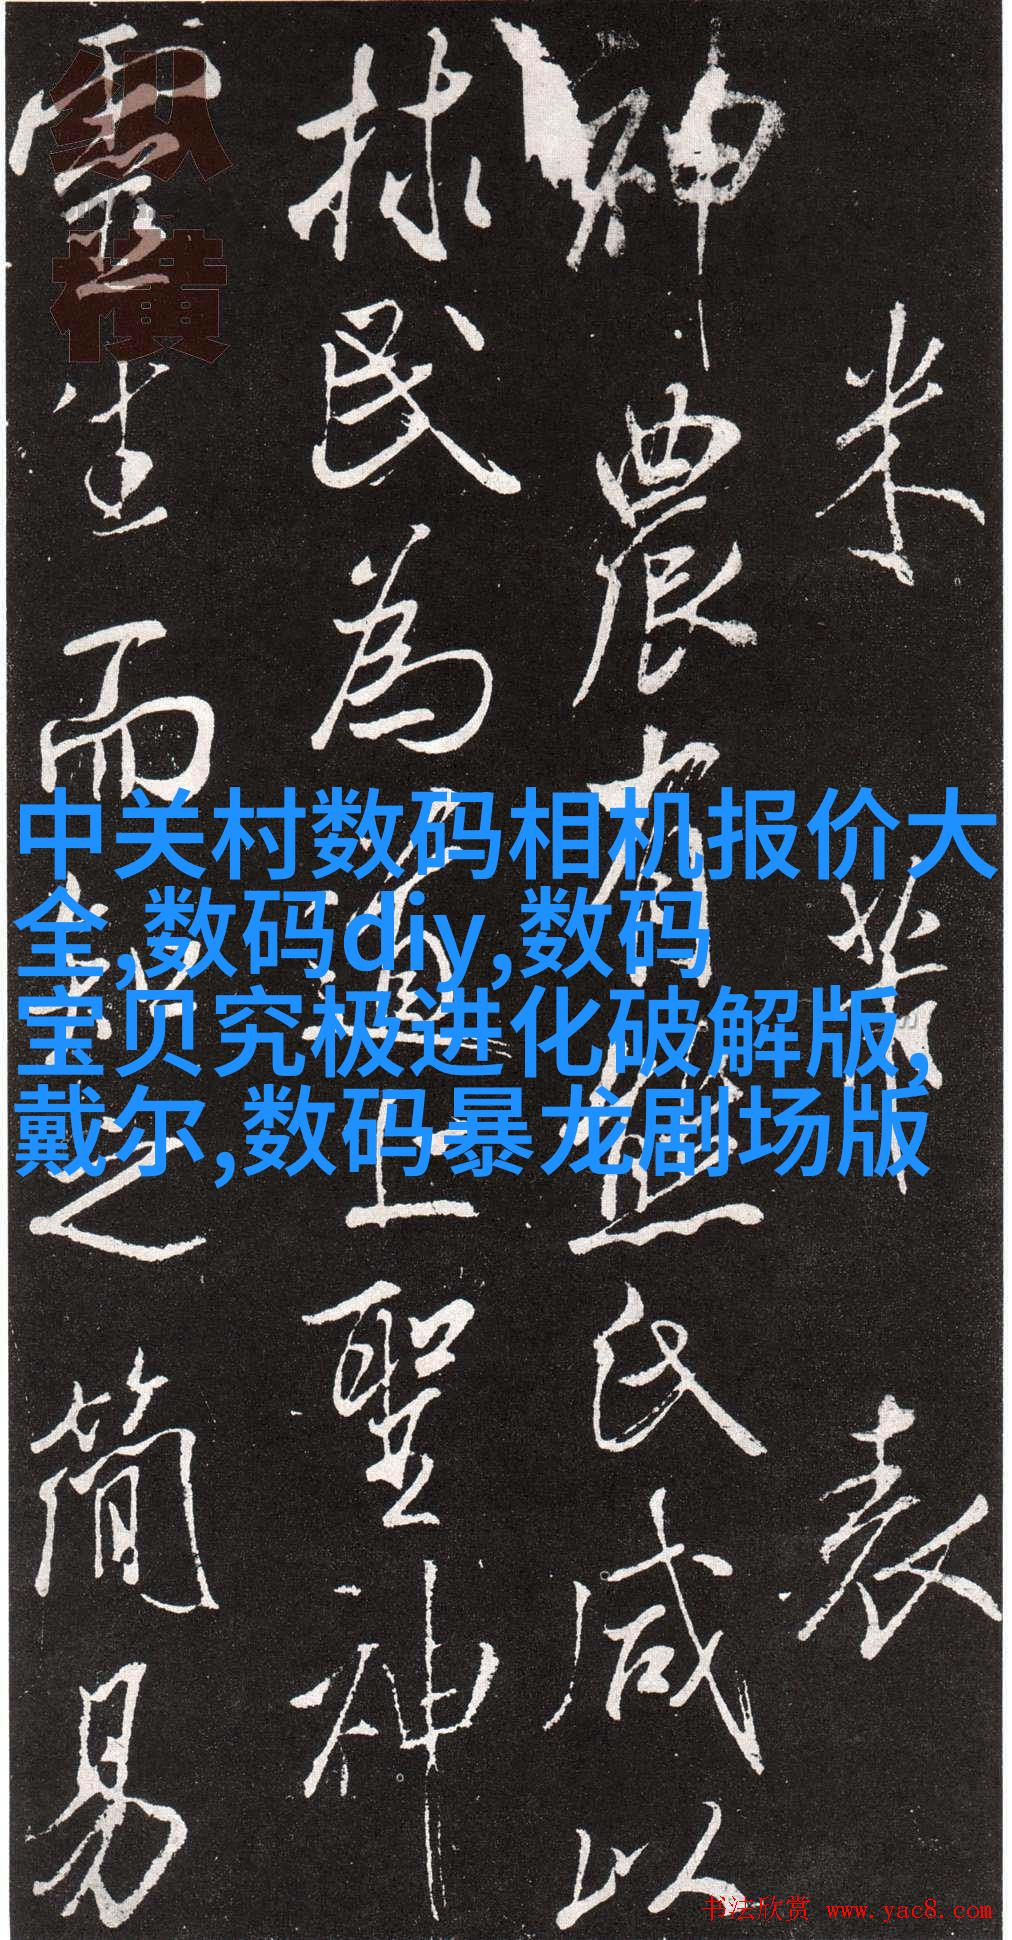 米芾表
神農有熊氏咸以
捄民為上聖神
靈生而知之簡易
纵横
中关村数码相机报价大
全,数码diy,数码
宝贝究极进化破解版,
戴尔,数码暴龙剧场版
书法欣赏 www.yac8.com